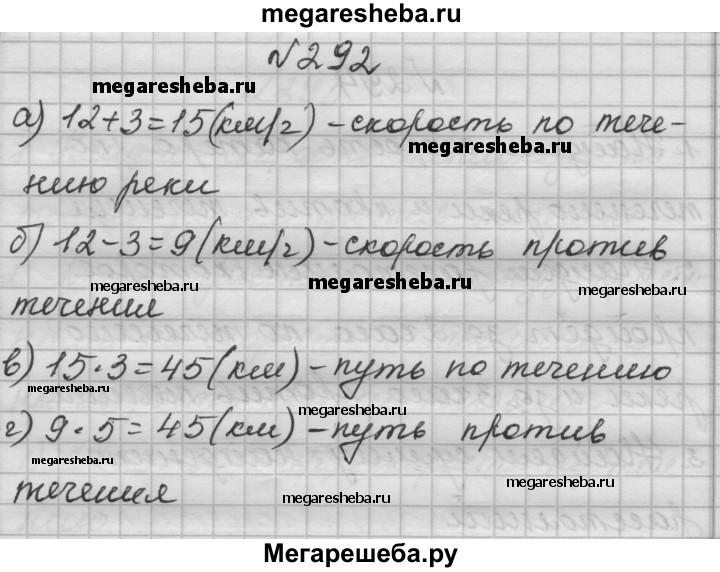 megaresheba.ru
№292
megaresheba.ru
а) 12+3=15(км/г) -скорость по тече-
megaresheba.ru
нию реки
б) 12-3=9(км/г)-скорость против
megaresheba.ru megaresheba.ru megaresheba.ru
течения
в) 15·3=45(км)-путь по течению
megaresheba.ru
megaresheba.ru
г) 9·5=45(км)-путь против
megaresheba.ru
течения
megaresheba.ru
megaresheba.ru
Мегарешеба.ру